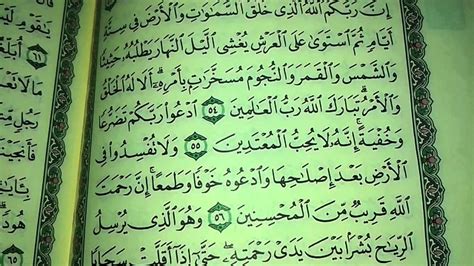 إِنَّ رَبَّكُمُ ٱللَّهُ ٱلَّذِى خَلَقَ ٱلسَّمَٰوَٰتِ وَٱلْأَرْضَ فِى سِتَّةِ
أَيَّامٍ ثُمَّ ٱسْتَوَىٰ عَلَى ٱلْعَرْشِ يُغْشِى ٱلَّيْلَ ٱلنَّهَارَ يَطْلُبُهُۥ حَثِيثًا
وَٱلشَّمْسَ وَٱلْقَمَرَ وَٱلنُّجُومَ مُسَخَّرَٰتٍۭ بِأَمْرِهِۦٓ ۗ أَلَا لَهُ ٱلْخَلْقُ
وَٱلْأَمْرُ ۗ تَبَارَكَ ٱللَّهُ رَبُّ ٱلْعَٰلَمِينَ ٥٤ ٱدْعُوا۟ رَبَّكُمْ تَضَرُّعًا
وَخُفْيَةً ۚ إِنَّهُۥ لَا يُحِبُّ ٱلْمُعْتَدِينَ ٥٥ وَلَا تُفْسِدُوا۟ فِى
ٱلْأَرْضِ بَعْدَ إِصْلَٰحِهَا وَٱدْعُوهُ خَوْفًا وَطَمَعًا ۚ إِنَّ رَحْمَتَ
ٱللَّهِ قَرِيبٌ مِّنَ ٱلْمُحْسِنِينَ ٥٦ وَهُوَ ٱلَّذِى يُرْسِلُ
ٱلرِّيَٰحَ بُشْرًۢا بَيْنَ يَدَىْ رَحْمَتِهِۦ ۖ حَتَّىٰٓ إِذَآ أَقَلَّتْ سَحَابًا
يَٰقَوْمِ
٦١
مَا لَا
رَجُلٍ
٦٥